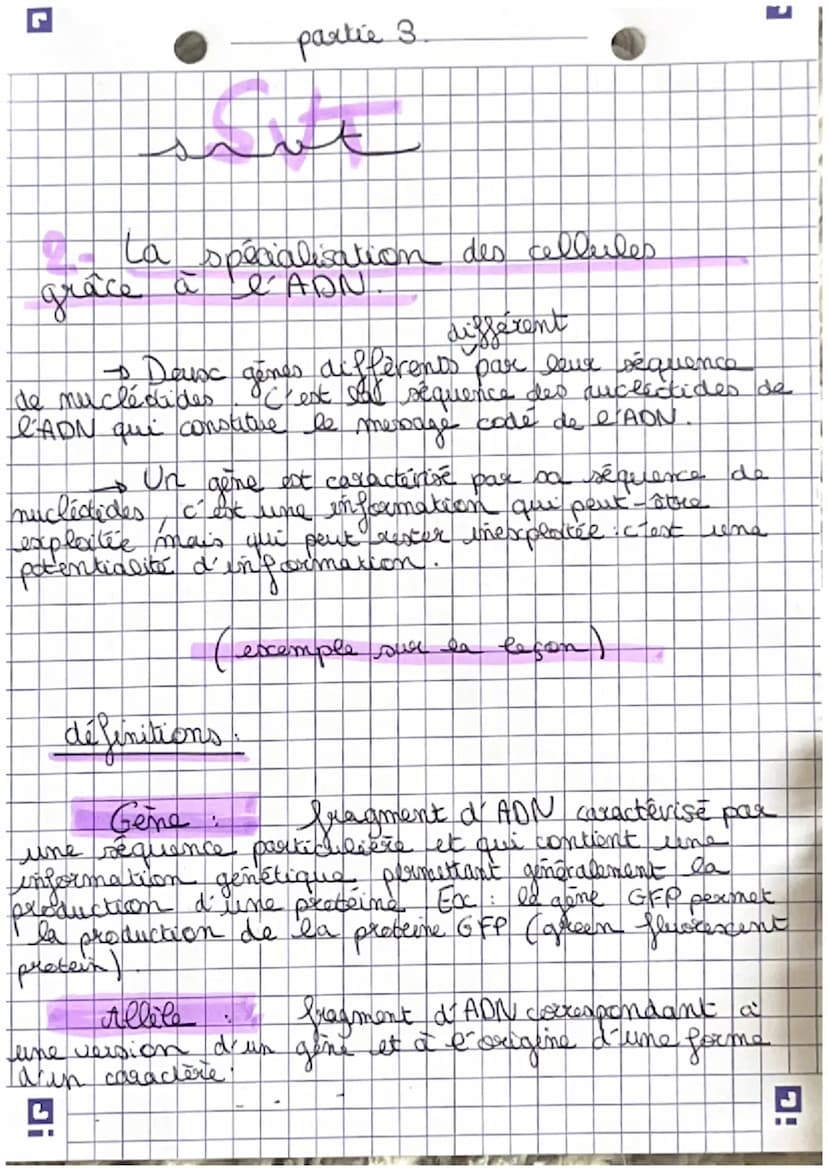 partie 3.
SVT
svt
2- La spécialisation des cellules
grâce à l'ADN.
différent
→ Deux gènes différents par leur séquence
de nuclédides. C'est la séquence des nucléotides de
l'ADN qui constitue le message codé de l'ADN.
→ Un gène est caractérisé par sa séquence de
nuclédides, c'est une information qui peut-être
exploitée mais qui peut rester inexploitée : c'est une
potentialité d'information.
(exemple sur la leçon)
définitions :
Gène : fragment d'ADN caractérisé par
une séquence particulière et qui contient une
information génétique permettant généralement la
production d'une protéine. Ex : le gène GFP permet
la production de la protéine GFP (green fluorescent
protein).
Allèle : fragment d'ADN correspondant à
une version d'un gène et à l'origine d'une forme
d'un caractère.